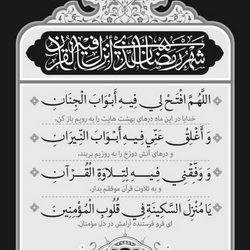 شهر رمضان الذی انزل فیه القرآن
اللَّهُمَّ افْتَحْ لِي فِيهِ أَبْوَابَ الْجِنَانِ
خدایا در این ماه درهای بهشت هایت را به رویم باز کن،
وَ أَغْلِقْ عَنِّي فِيهِ أَبْوَابَ النِّيرَانِ
و درهای آتش دوزخ را به رویم ببند،
وَ وَفِّقْنِي فِيهِ لِتِلاوَةِ الْقُرْآنِ
و به تلاوت قرآن موفقم بدار،
يَا مُنْزِلَ السَّكِينَةِ فِي قُلُوبِ الْمُؤْمِنِينَ
ای فرو فرستنده آرامش در دل مؤمنان.